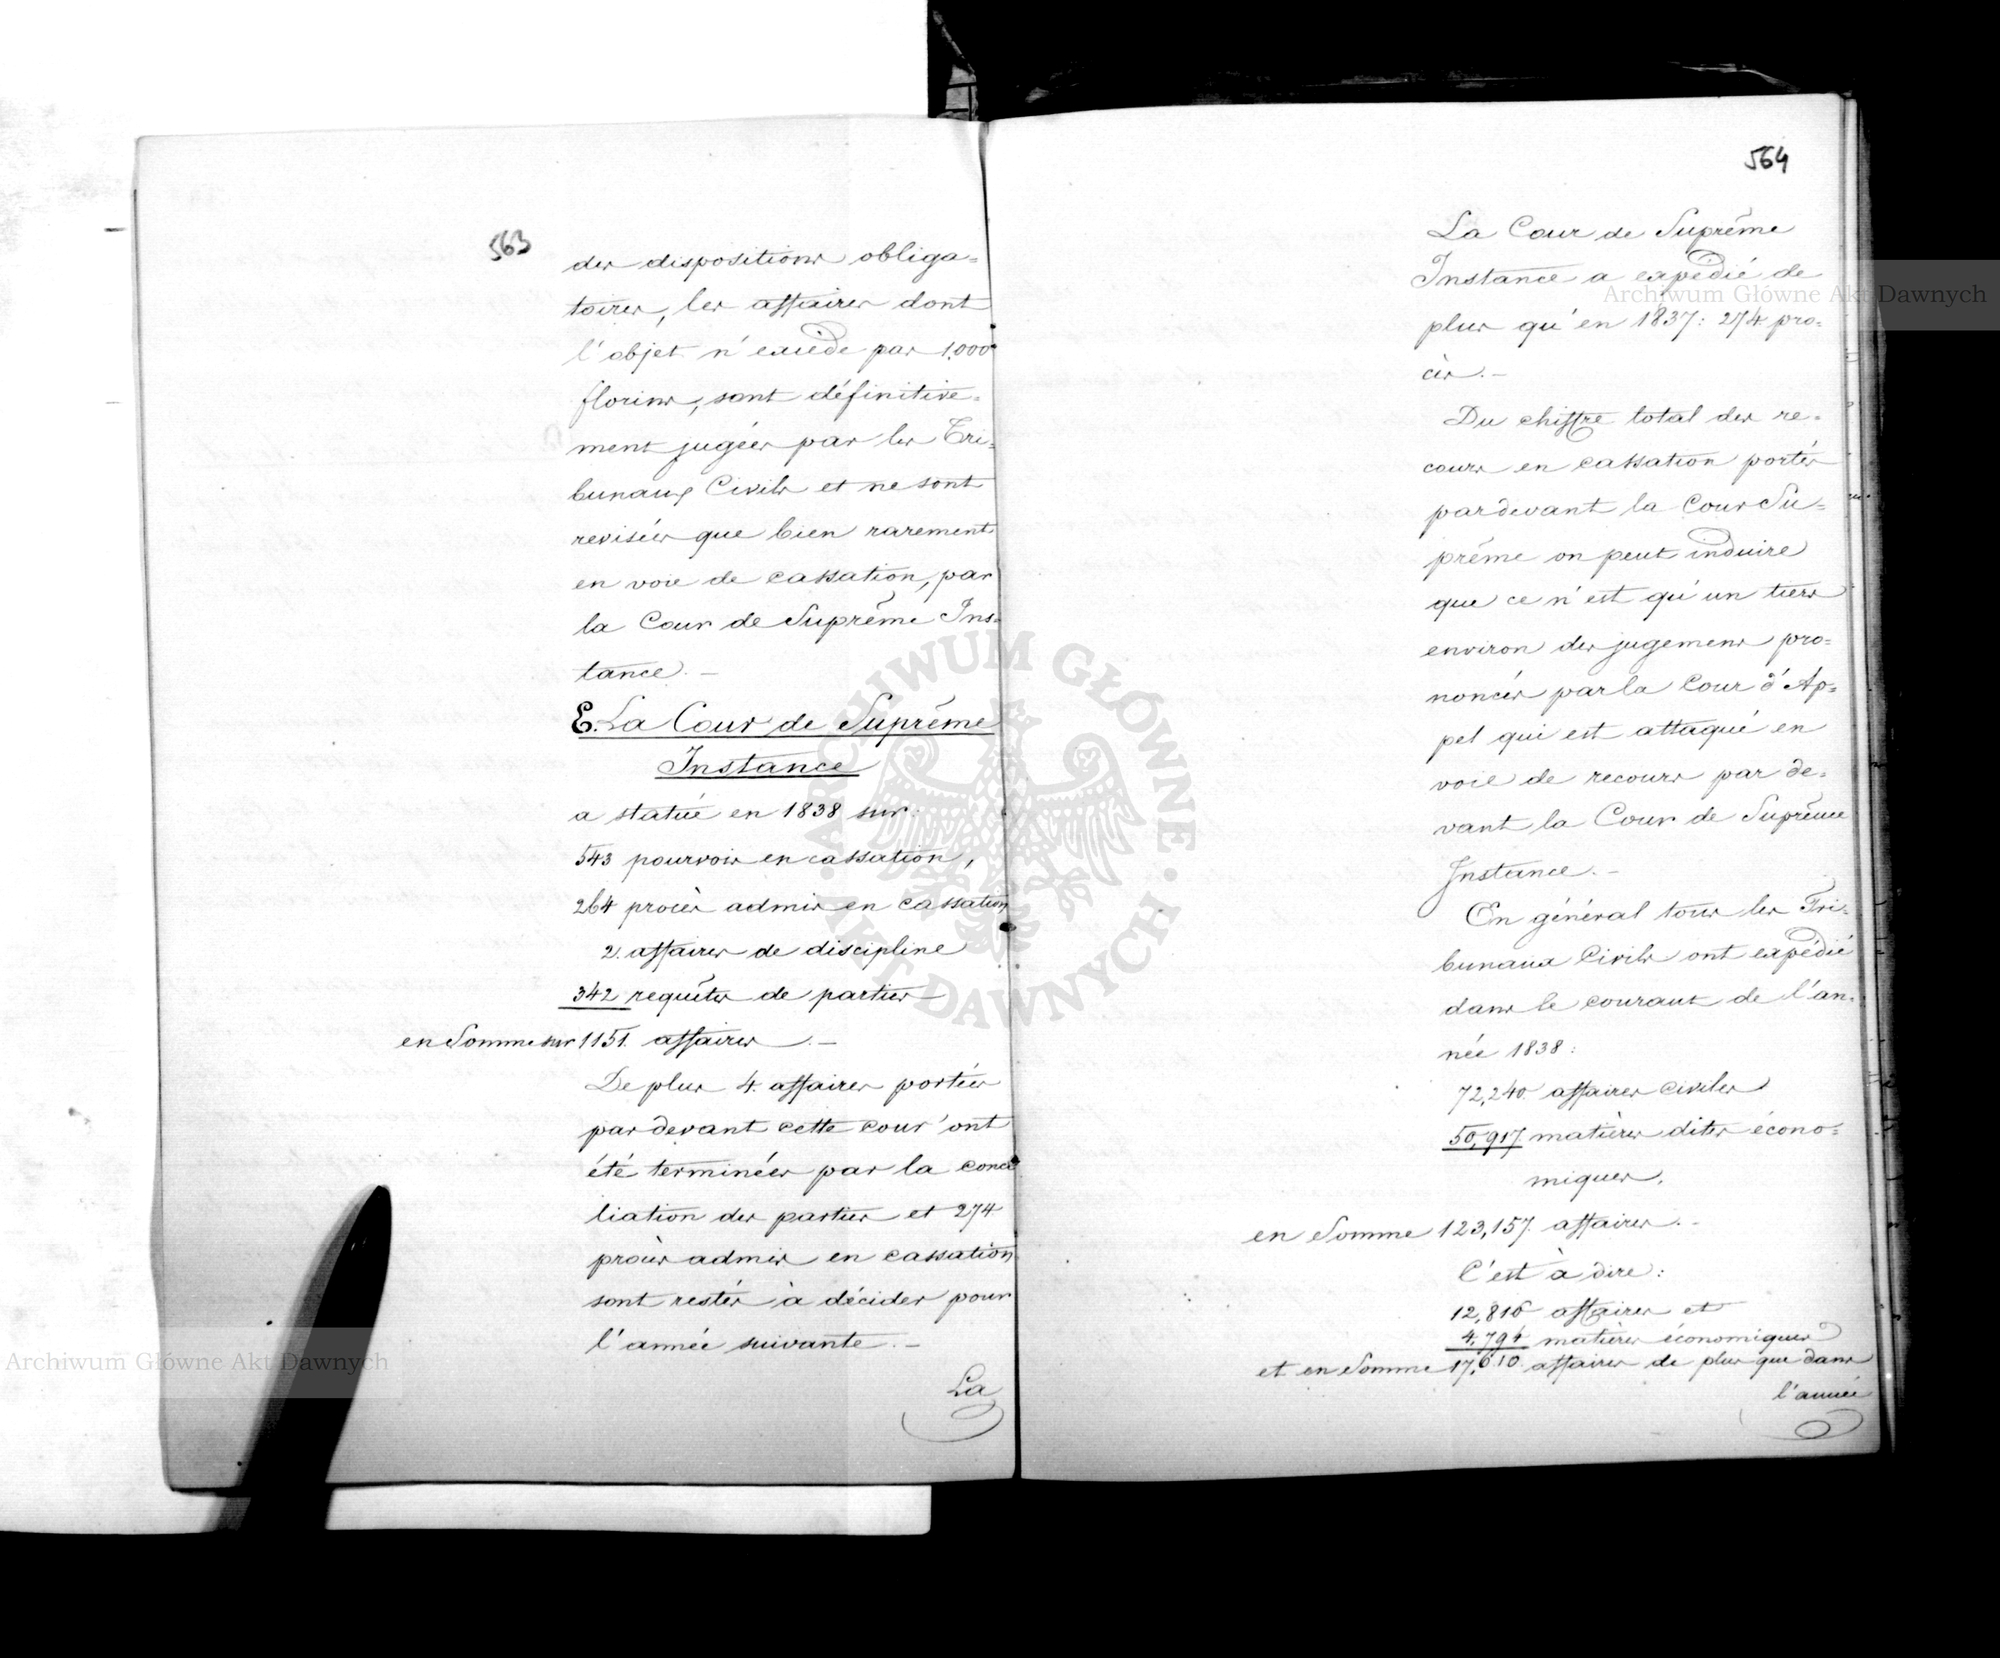 563
des dispositions obliga=
toires, les affaires dont
l'objet n'excède pas 1,000
florins, sont définitive=
ment jugées par les Tri=
bunaux Civils et ne sont
revisées que bien rarement
en voie de cassation, par
la Cour de Suprême Ins=
tance. –
E. La Cour de Suprême
Instance
a statué en 1838 sur:
543 pourvois en cassation,
264 procès admis en cassation
2. affaires de discipline
342 requêtes de parties
en Somme sur 1151. affaires. –
De plus 4. affaires portées
par devant cette cour ont
été terminées par la conci
liation des parties et 274
procès admis en cassation
sont restés à décider pour
l'année suivante. –
La
564
La Cour de Suprême
Instance a expédié de
plus qu'en 1837: 274 pro=
cès. –
Du chiffre total des re=
cours en cassation portés
pardevant la Cour Su=
prême on peut induire
que ce n'est qu'un tiers
environ des jugemens pro=
noncés par la Cour d'Ap=
pel qui est attaqué en
voie de recours par de=
vant la Cour de Suprême
Instance. –
En général tous les Tri=
bunaux Civils ont expédié
dans le courant de l'an=
née 1838:
72,240. affaires civiles
50,917 matières dites écono=
miques.
en Somme 123,157. affaires. –
C'est à dire:
12,816 affaires et
4,794 matières économiques
et en Somme 17,610 affaires de plus que dans
l'année
Archiwum Główne Akt Dawnych
Archiwum Główne Akt Dawnych
ARCHIWUM GŁÓWNE · AKT DAWNYCH ·